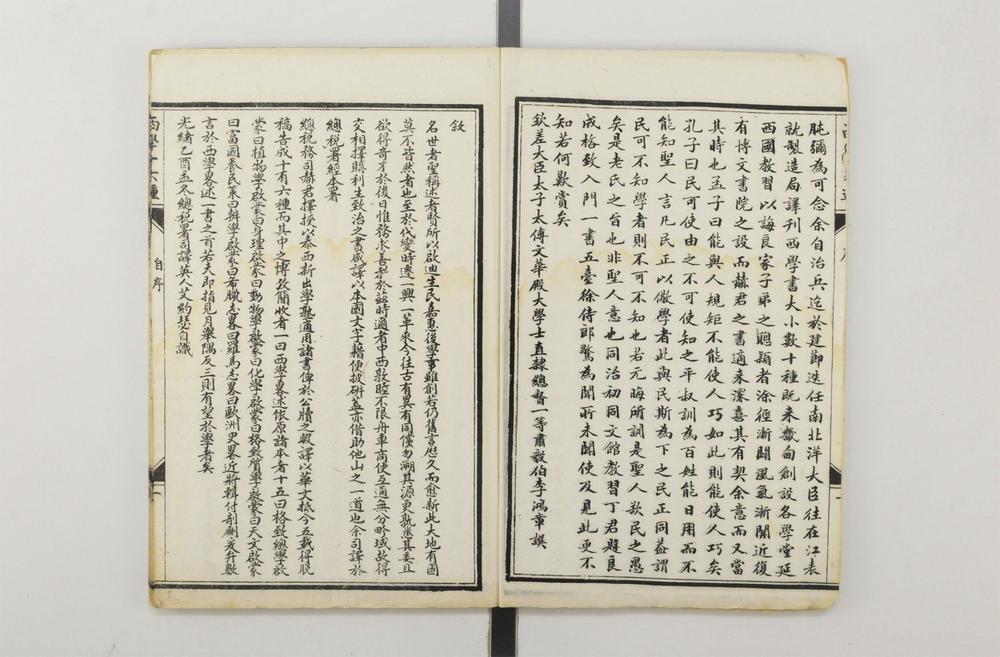 肫彌為可念余自治兵迄於建節迭任南北洋大臣往在江表
就製造局譯刊西學書大小數十種既來畿甸創設各學堂延
西國教習以誨良家子弟之聰穎者涂徑漸闢風氣漸開近復
有博文書院之設而赫君之書適來深喜其有契余意而又當
其時也孟子曰能與人規矩不能使人巧如此則能使人巧矣
孔子曰民可使由之不可使知之平叔訓為百姓能日用而不
能知聖人言凡民正以儆學者此與民斯為下之民正同蓋謂
民可不知學者則不可不知也若元晦所訓是聖人欺民之愚
矣是老氏之旨也非聖人意也同治初同文館教習丁君韙良
成格致入門一書五臺徐侍郎驚為聞所未聞使及見此更不
知若何歎賞矣
欽差大臣太子太傅文華殿大學士直隸總督一等肅毅伯李鴻章譔
敘
名世者聖稱述者賢所以啟迪生民嘉惠後學事雖創若仍舊言歷久而愈新此大地有國
莫不皆然者也至於代變時遷一興一革來今往古有異有同儻勿溯其源更孰悉其委且
欲得奇才於後日惟務求善教於茲時邇者中西敦睦不限舟車商使互通無分畛域故得
交相擇購利生致治之書咸譯以本國文字藉便披研蓋亦借助他山之一道也余司譯於
總稅署經本署
總稅務司赫君擇授以泰西新出學塾適用諸書俾於公牘之暇譯以華文抵今五載得脫
稿告成十有六種而其中之博攷簡收者一曰西學畧述依原譜本者十五曰格致總學啟
蒙曰植物學啟蒙曰身理啟蒙曰動物學啟蒙曰化學啟蒙曰格致質學啟蒙曰天文啟蒙
曰富國養民策曰辨學啟蒙曰希臘志畧曰羅馬志畧曰歐洲史畧近將輯付剞劂爰弁數
言於西學畧述一書之首若夫即指見月舉隅反三則有望於學者矣
光緒乙酉孟冬總稅署司譯英人艾約瑟自識
西學十六種
自序